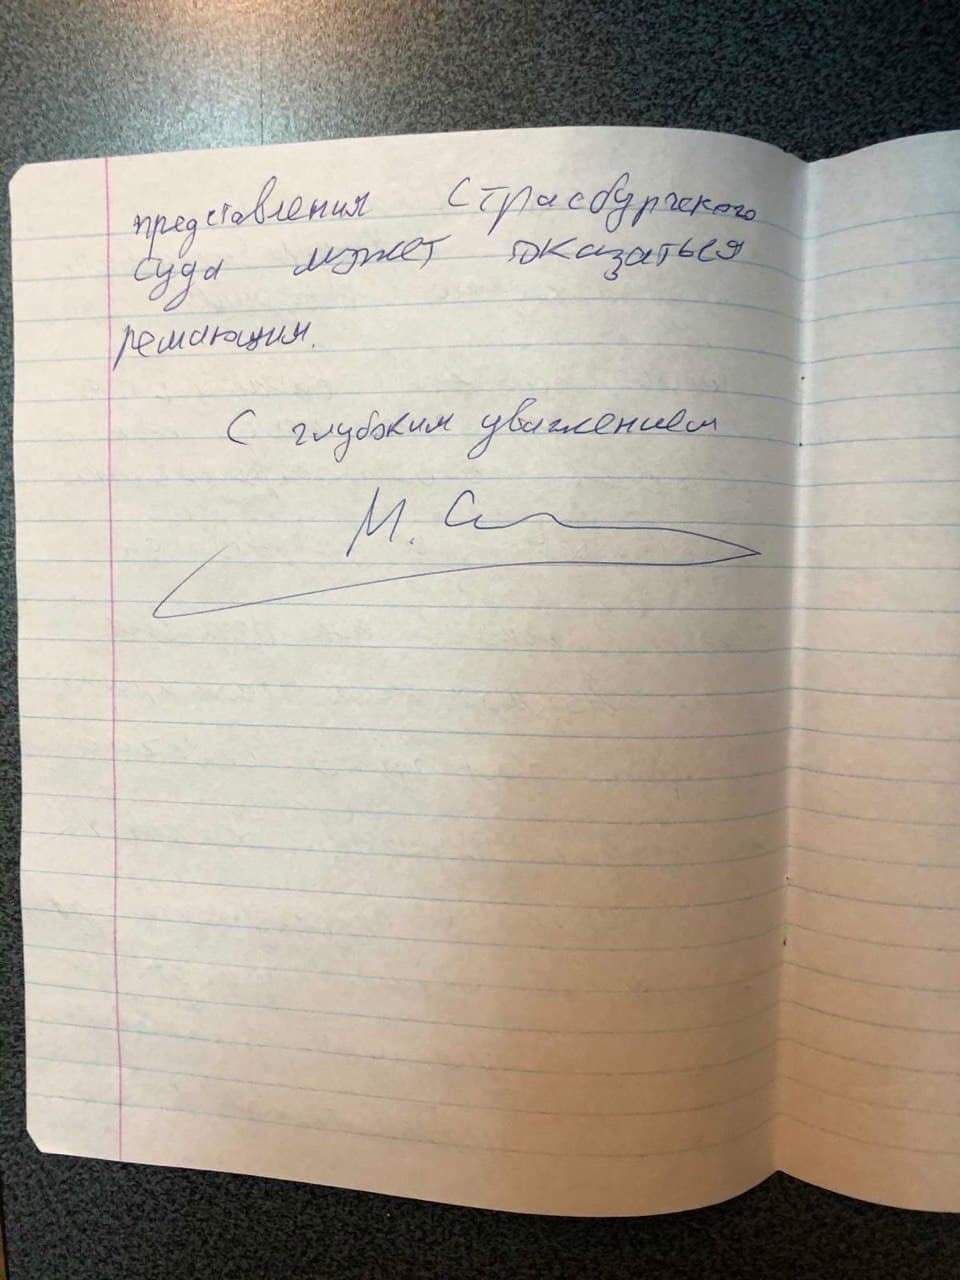 представления Страсбургского
суда может оказаться
решающим.
С глубоким уважением
М. С